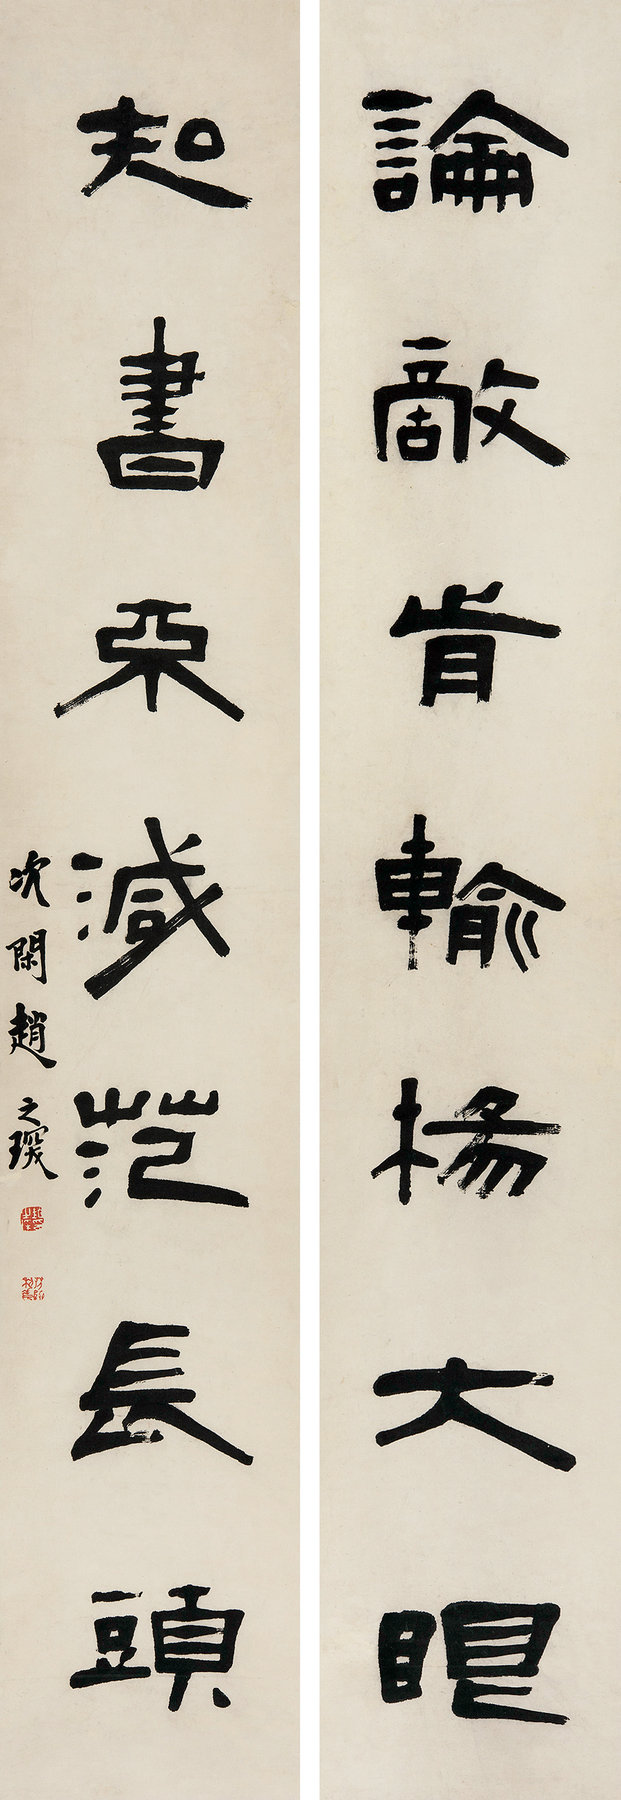 論敵肯輸楊大眼
知書亦減范長頭
次閑趙之琛